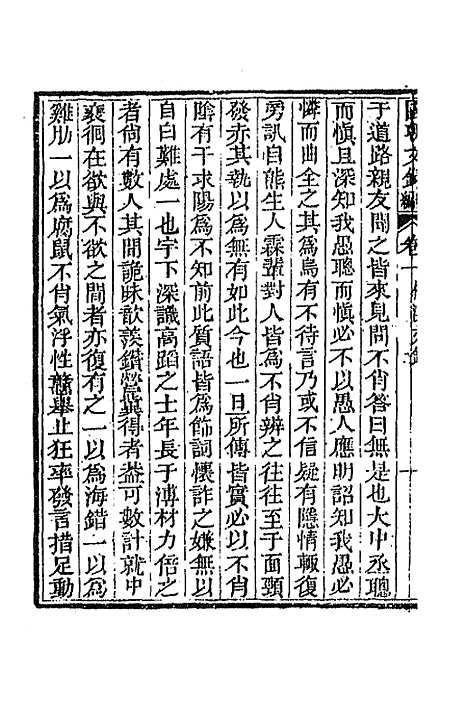 國朝文錄續編 卷一
于道路親友聞之皆來見問不肖答曰無是也大中丞聰
而愼且深知我愚聰而愼必不以愚人應明詔知我愚必
憐而曲全之其爲烏有不待言乃或不信疑有隱情輒復
旁訊自熊生人霖輩對人皆爲不肖辨之往往至于面頸
發赤其執以爲無有如此今也一日所傳皆實必以不肖
陰有干求陽爲不知前此質語皆爲飾詞懷詐之嫌無以
自白難處一也宇下深識高蹈之士年長于溥材力倍之
者尙有數人其間詭昧歆羨鑽營冀得者蓋可數計就中
裵徊在欲與不欲之間者亦復有之一以爲海錯一以爲
雞肋一以爲腐鼠不肖氣浮性戇舉止狂率發言措足動